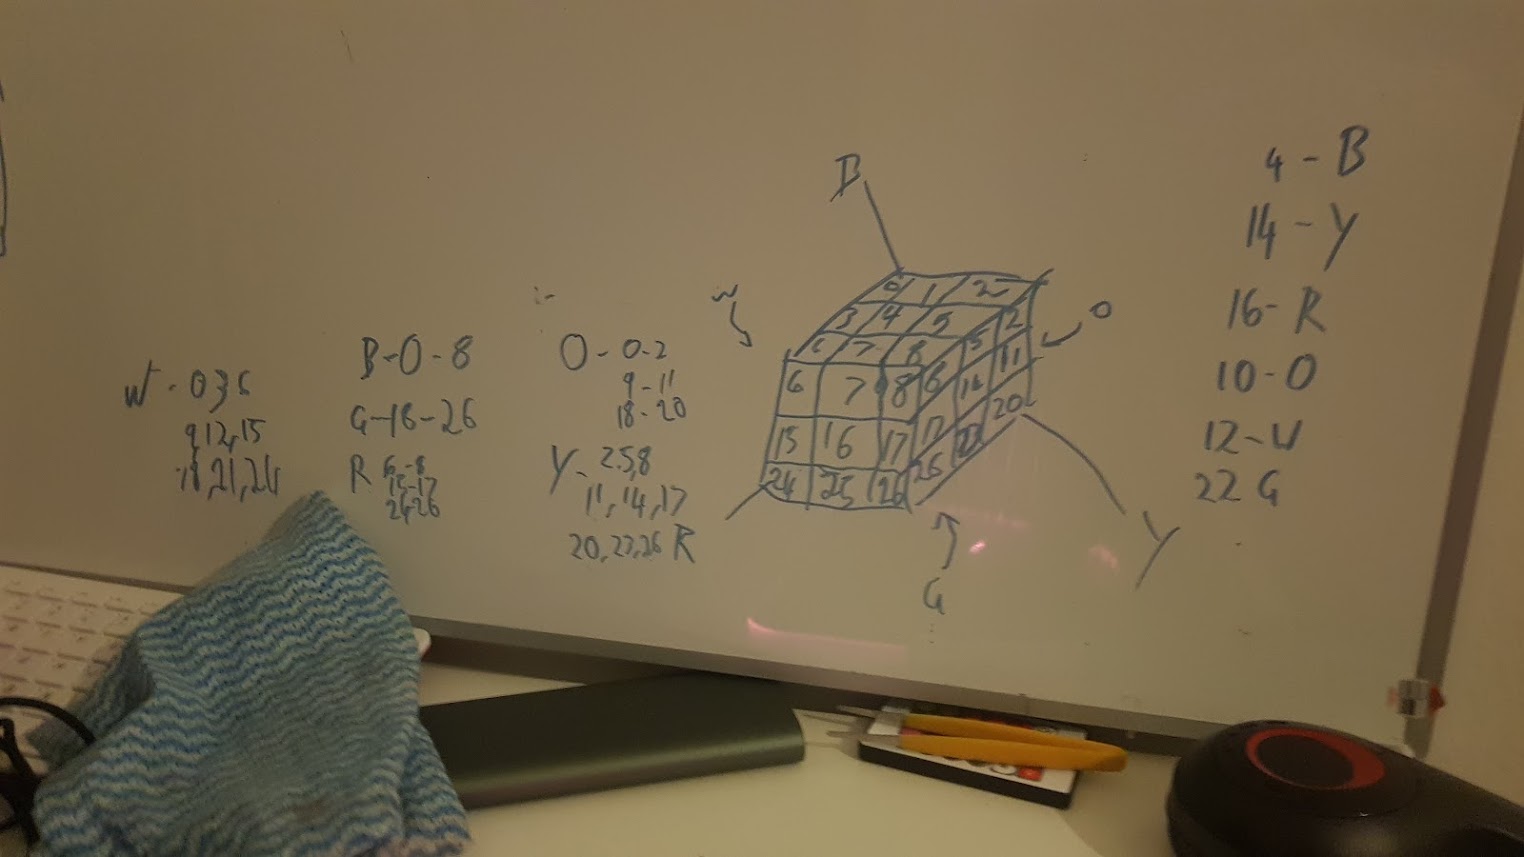 W - 0 3 6
9, 12, 15
18, 21, 24
B - 0 - 8
G - 18 - 26
R 6 - 8
15 - 17
24 - 26
O - 0 - 2
9 - 11
18 - 20
Y - 2,5,8
11, 14, 17
20, 23, 26
R
B
W
O
0 1 2
3 4 5
6 7 8
6 7 8
15 16 17
24 25 26
5 2
14 11
20
17
26
G
Y
4 - B
14 - Y
16 - R
10 - O
12 - W
22 G